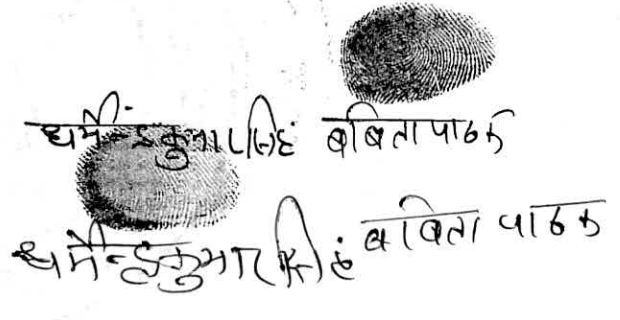 धर्मेन्द्र कुमार सिंह बबिता पाठक
धर्मेन्द्र कुमार सिंह बबिता पाठक